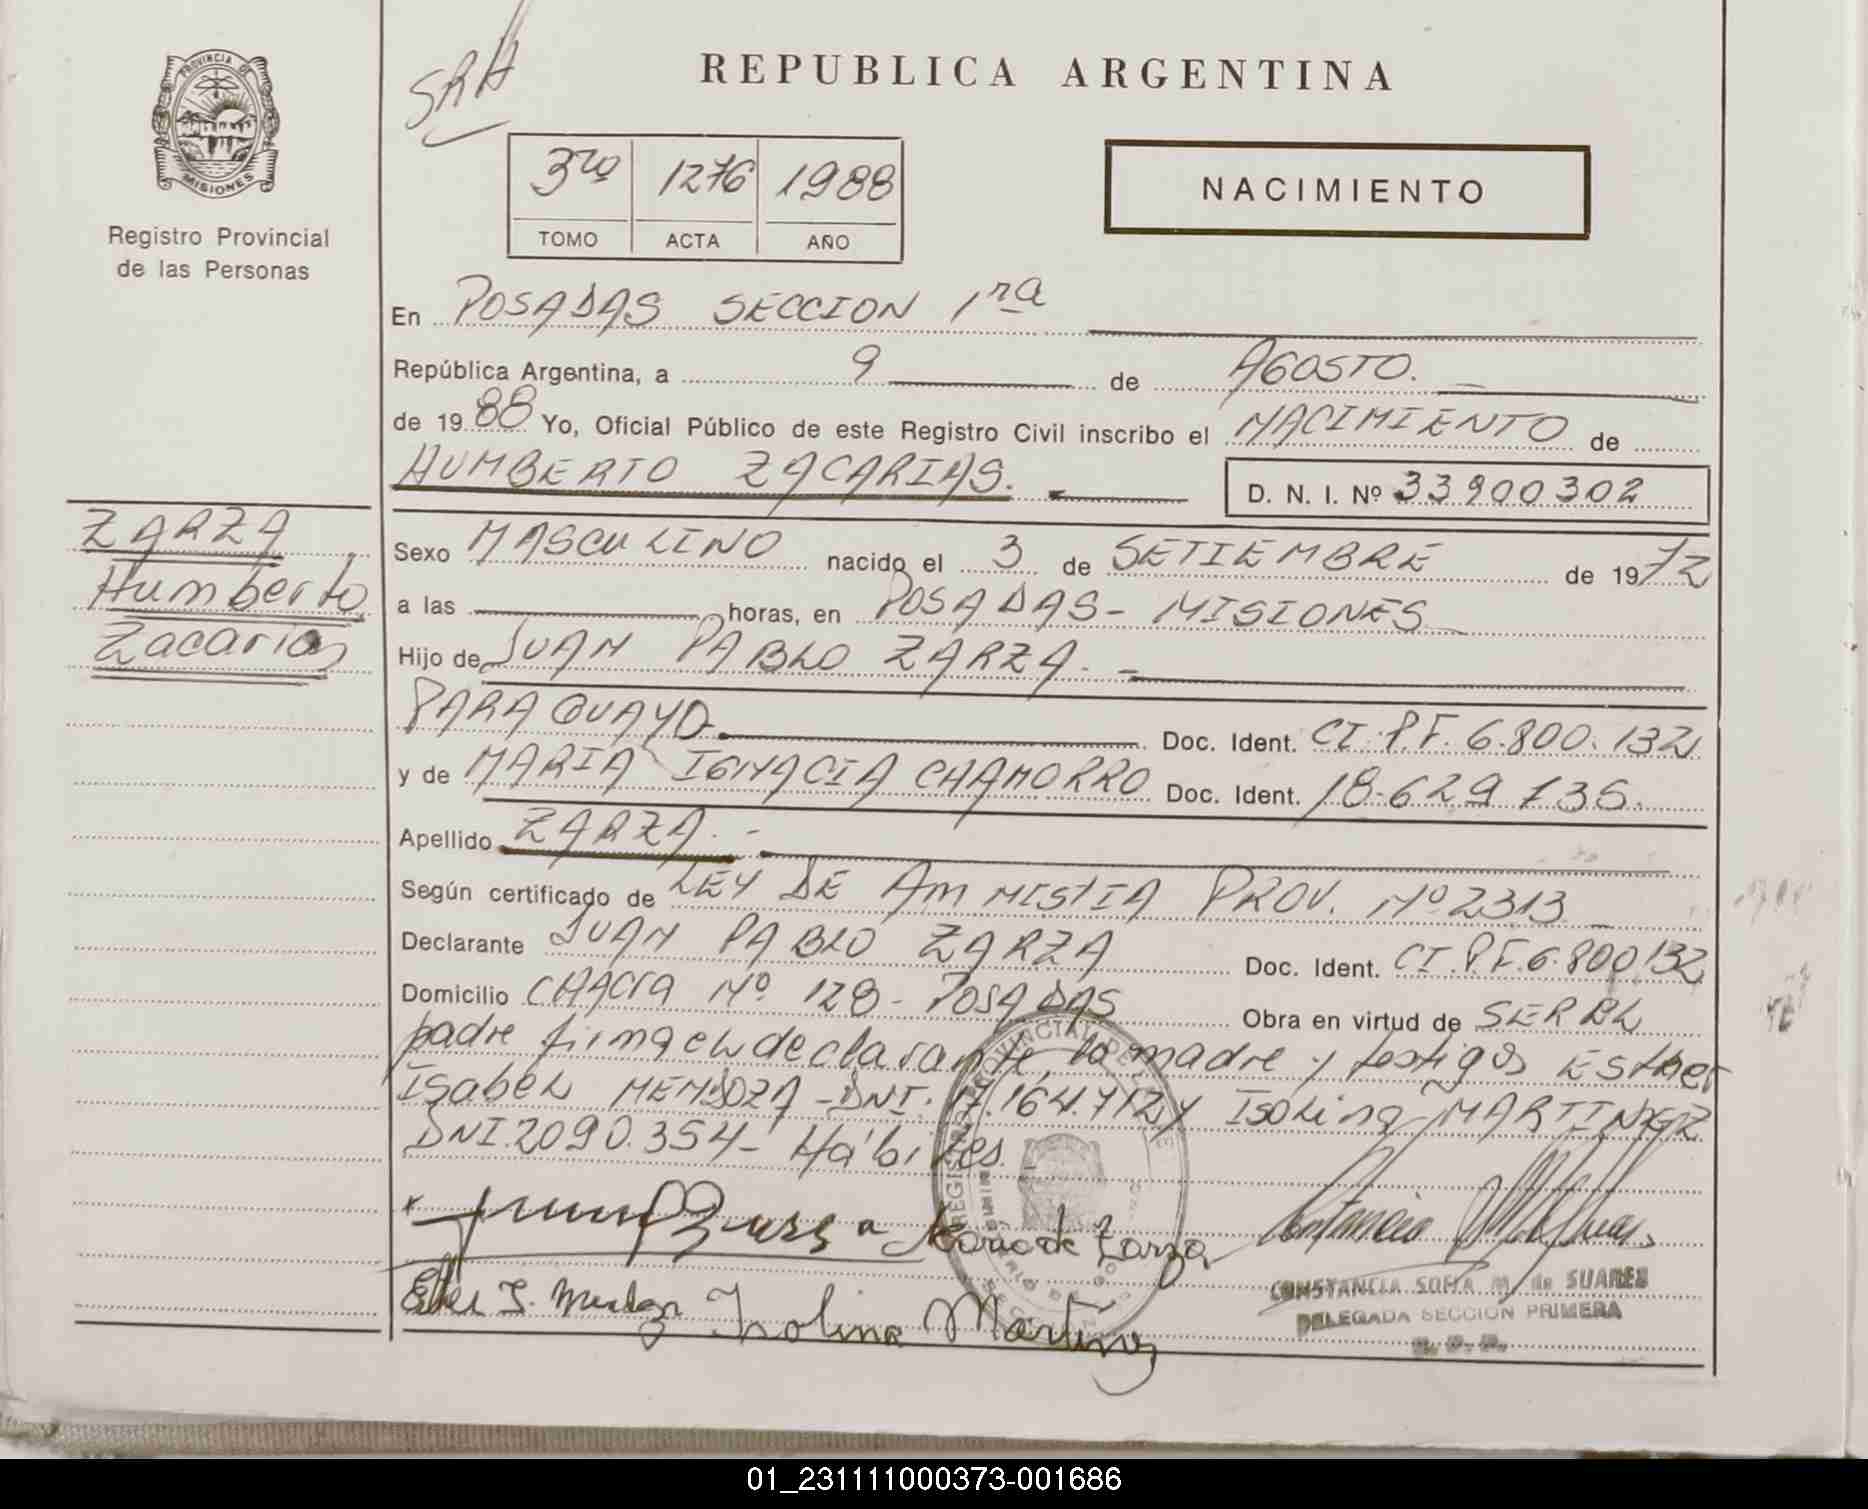 SRA
REPUBLICA ARGENTINA
PROVINCIA DE
MISIONES
Registro Provincial
de las Personas
3ro 1276 1988
TOMO ACTA AÑO
NACIMIENTO
En POSADAS SECCION 1ra
República Argentina, a 9 de AGOSTO.
de 1988 Yo, Oficial Público de este Registro Civil inscribo el NACIMIENTO de
HUMBERTO ZACARIAS. D. N. I. Nº 33900302
ZARZA
Humberto
Zacarias
Sexo MASCULINO nacido el 3 de SETIEMBRE de 1972
a las horas, en POSADAS - MISIONES
Hijo de JUAN PABLO ZARZA. -
PARAGUAYO Doc. Ident. CI.P.F. 6.800.132
y de MARIA IGNACIA CHAMORRO Doc. Ident. 18.629.135.
Apellido ZARZA. -
Según certificado de LEY DE AMNISTIA PROV. Nº 2313
Declarante JUAN PABLO ZARZA Doc. Ident. CI.P.F. 6.800132
Domicilio CHACRA Nº 128 - POSADAS Obra en virtud de SER EL
padre firma el declarante, la madre y testigos Esther
Isabel MENDOZA - DNI. 17.164.712 y Isolina MARTINEZ
DNI. 2090.354 - Hábiles
Maria de Zarza
Isolina Martinez
CONSTANCIA SOFIA M. de SUAREZ
DELEGADA SECCION PRIMERA
R. P. P.
01_231111000373-001686